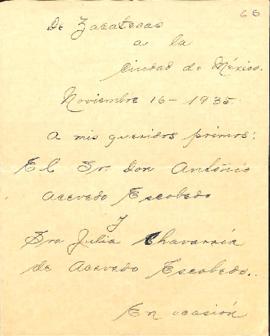 68
De Zacatecas
a la
Ciudad de México.
Noviembre 16-1935.
A mis queridos primos:
El Sr. Don António
Acevedo Escobedo
y
Sra Julia Chavarría
de Acevedo Escobedo.
En ocasión